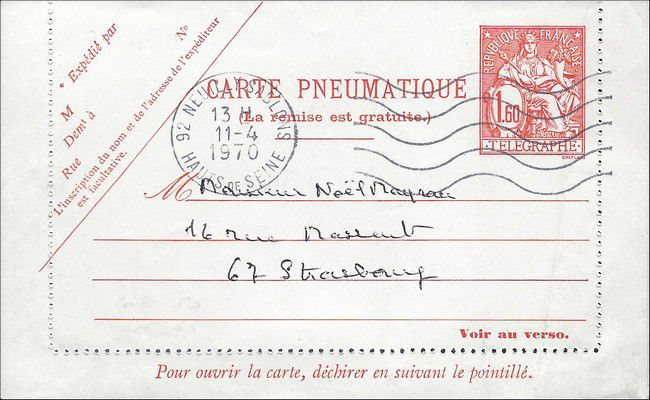 * Expédié par
N°
M
Demt à
Rue
L'inscription du nom et de l'adresse de l'expéditeur
est facultative.
CARTE PNEUMATIQUE
(La remise est gratuite.)
RÉPUBLIQUE FRANÇAISE
1.60
TÉLÉGRAPHE
92 NEUILLY SABLONS
13 H
11-4
1970
HAUTS DE SEINE
M Monsieur Noël
16 rue
67 Strasbourg
Voir au verso.
Pour ouvrir la carte, déchirer en suivant le pointillé.